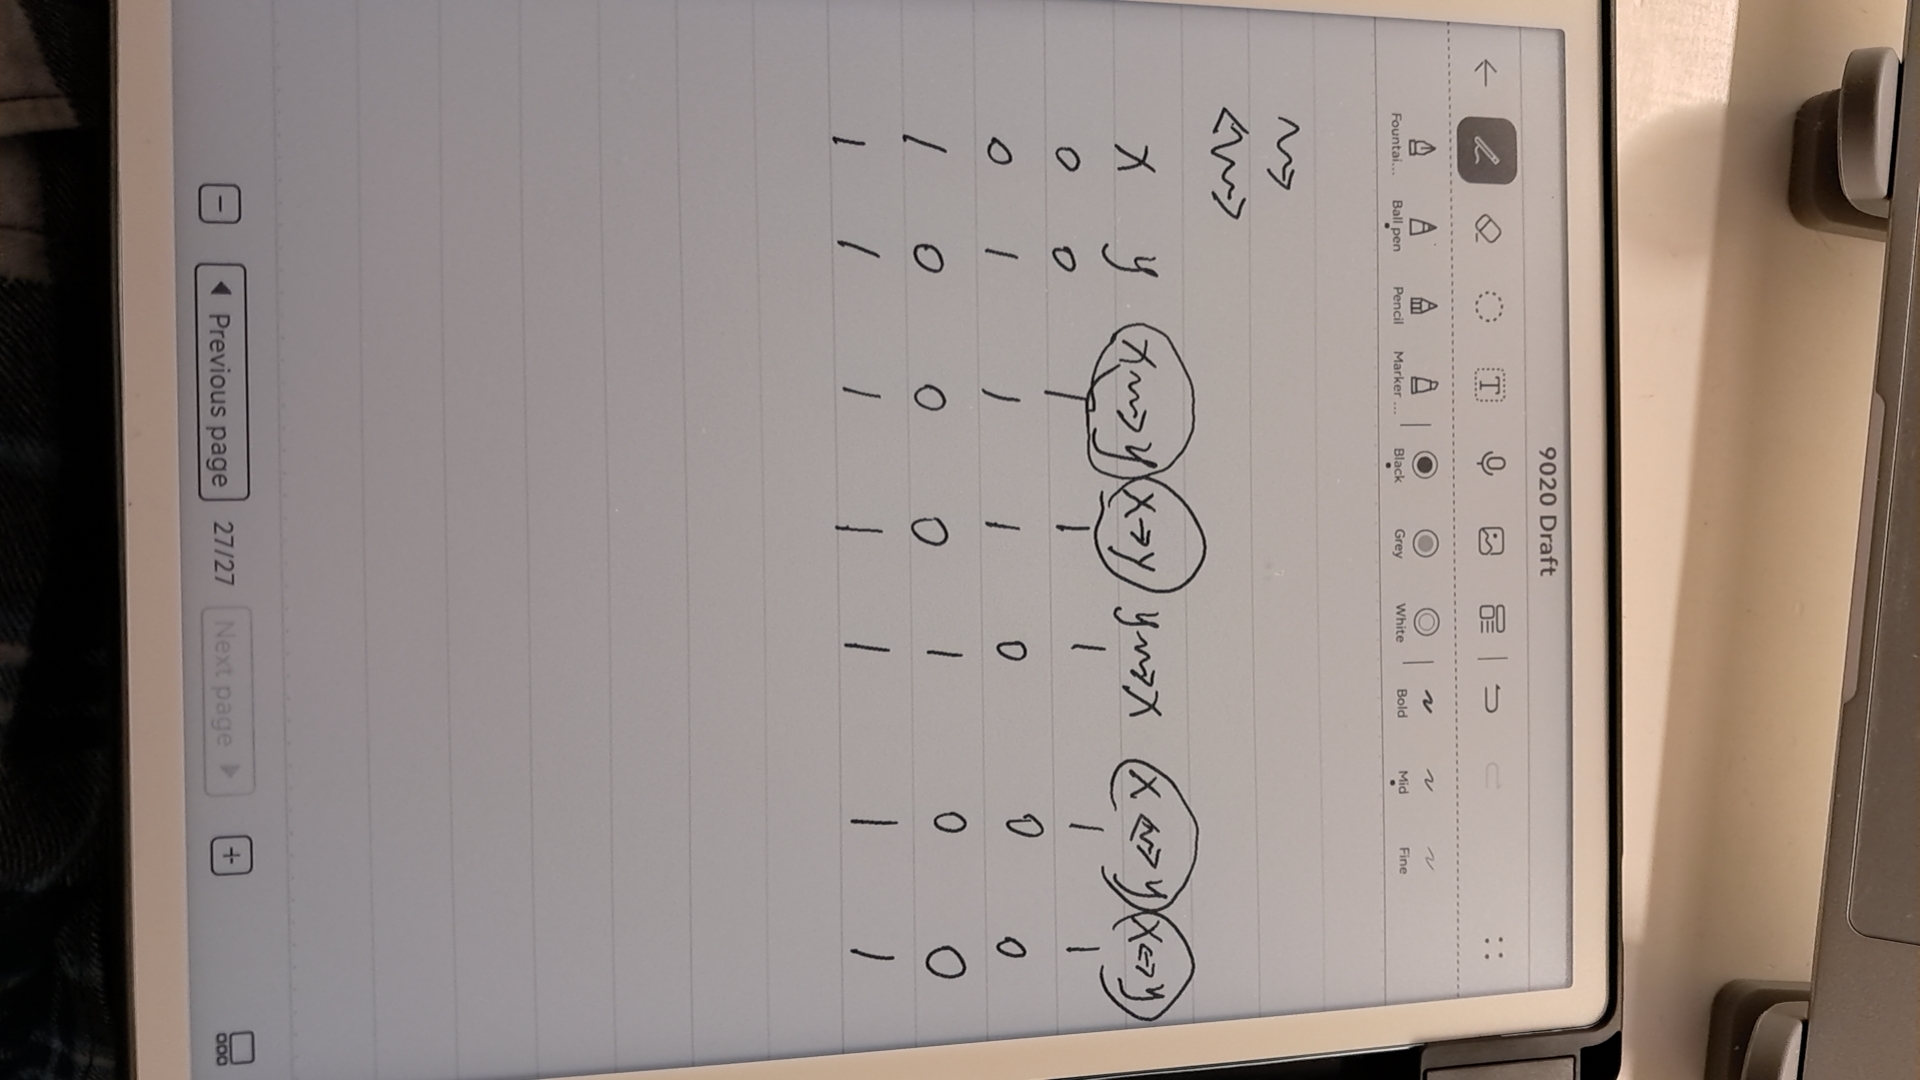 9020 Draft
Fountai... Ball pen Pencil Marker ... Black Grey White Bold Mid Fine
⇝
⇜⇝
x y x⇝y x→y y⇝x x↭y x↔y
0 0 1 1 1 1 1
0 1 1 1 0 0 0
1 0 0 0 1 0 0
1 1 1 1 1 1 1
Previous page 27/27 Next page